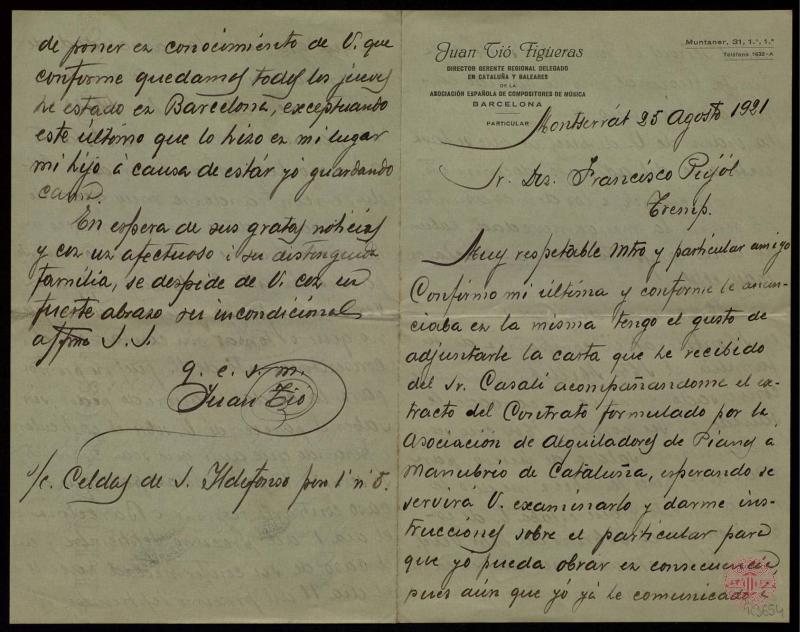 Juan Tió Figueras
DIRECTOR GERENTE REGIONAL DELEGADO
EN CATALUÑA Y BALEARES
DE LA
ASOCIACIÓN ESPAÑOLA DE COMPOSITORES DE MÚSICA
BARCELONA
PARTICULAR
Muntaner, 31, 1.º, 1.ª
Teléfono 1632-A
Montserrát 25 Agosto 1921
Sr. Dn. Francisco Pujól
Tremp.
Muy respetable Mtro y particular amigo
Confirmo mi última y conforme le anun-
ciaba en la misma tengo el gusto de
adjuntarle la carta que he recibido
del Sr. Casali acompañandome el ex-
tracto del Contrato formulado por la
Asociación de Alquiladores de Pianos á
Manubrio de Cataluña, esperando se
servirá V. examinarlo y darme ins-
trucciones sobre el particular para
que yó pueda obrar en consecuencia,
pues aún que yó yá he comunicado
de poner en conocimiento de V. que
conforme quedamos todos los jueves
he estado en Barcelona, exceptuando
este último que lo hizo en mi lugar
mi hijo á causa de estár yó guardando
cama.
En espera de sus gratas noticias
y con un afectuoso i su distinguida
familia, se despide de V. con un
fuerte abrazo su incondicional
affmo S. S.
q. e. s. m.
Juan Tió
s/c. Celdas de S. Ildefonso piso 1º nº 8.